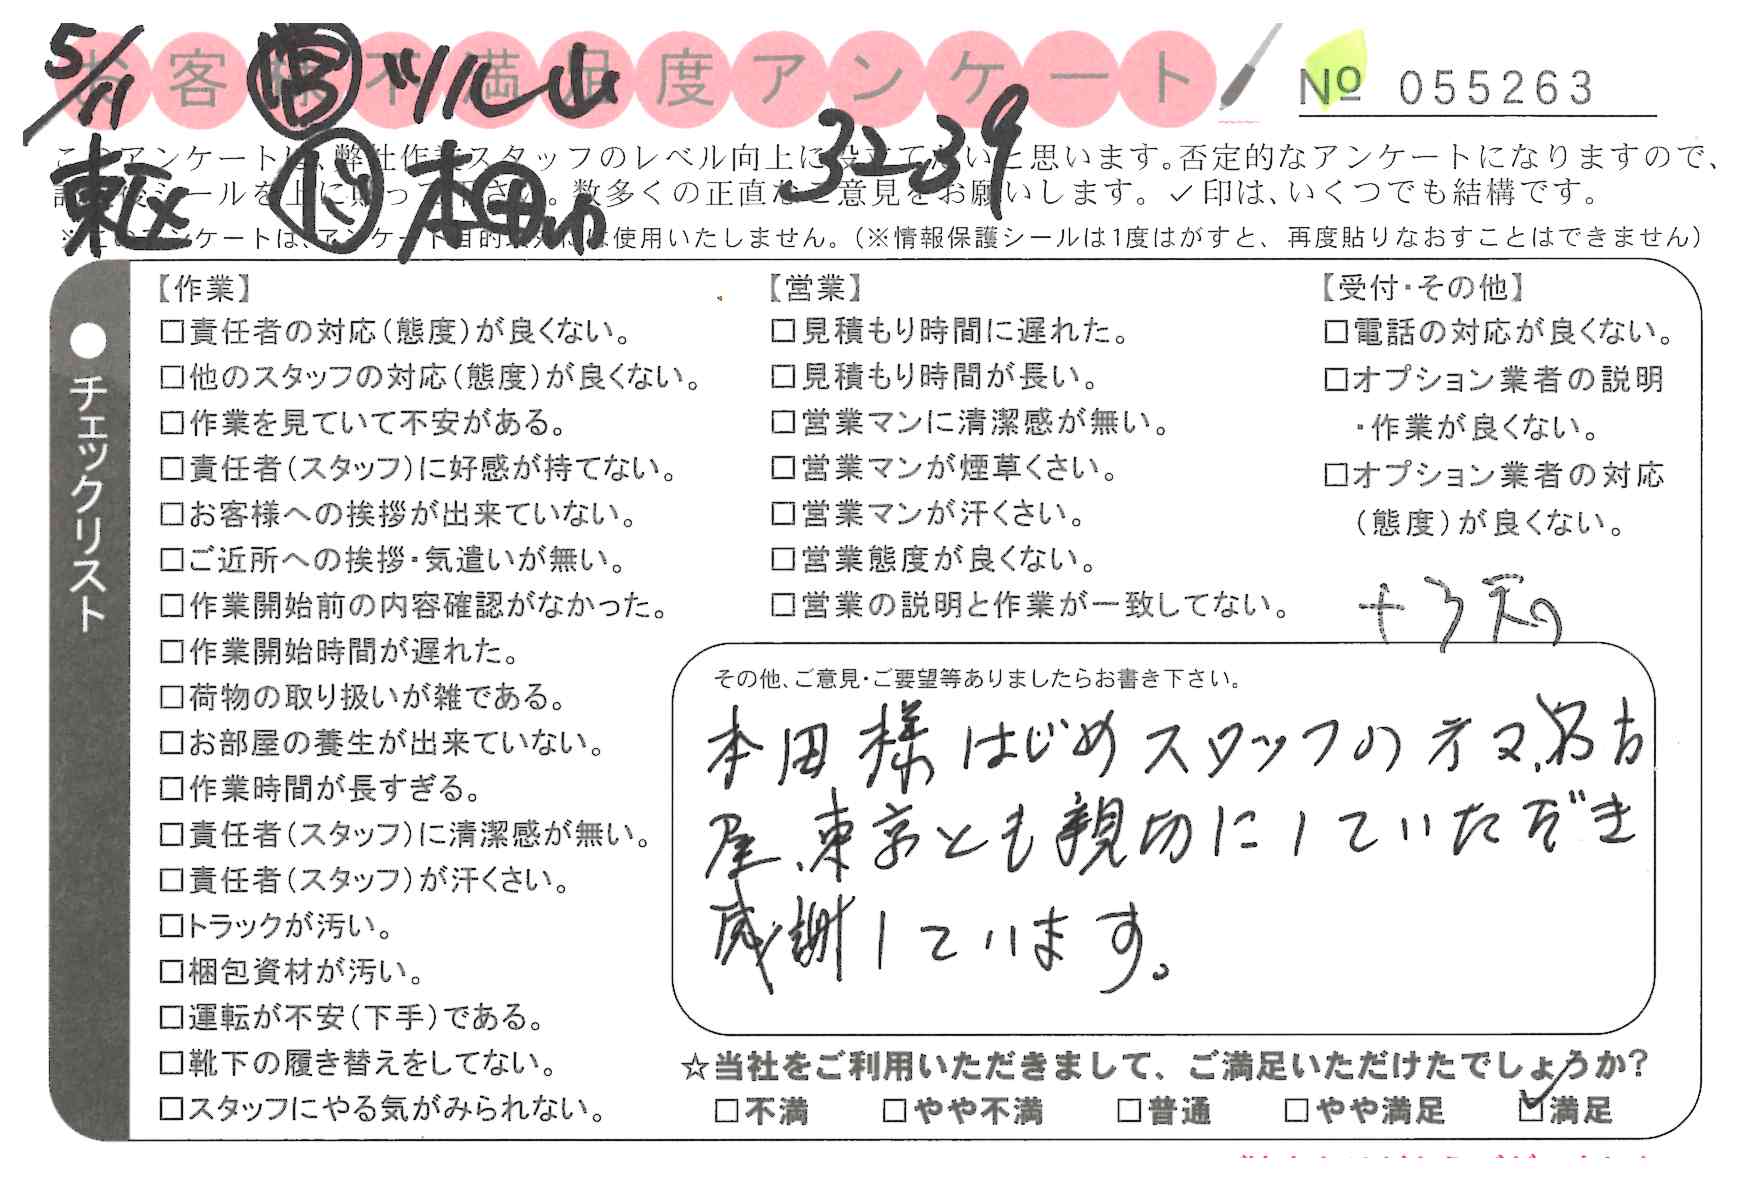 お客様不満足度アンケート
№ 055263
5/11 営 ツル山
東区 ド 本田
32-39
このアンケートは、弊社作業スタッフのレベル向上に役立てたいと思います。否定的なアンケートになりますので、
シールを上に貼って下さい。数多くの正直なご意見をお願いします。✓印は、いくつでも結構です。
※このアンケートは、アンケート目的以外には使用いたしません。（※情報保護シールは1度はがすと、再度貼りなおすことはできません）
●チェックリスト
【作業】
□責任者の対応（態度）が良くない。
□他のスタッフの対応（態度）が良くない。
□作業を見ていて不安がある。
□責任者（スタッフ）に好感が持てない。
□お客様への挨拶が出来ていない。
□ご近所への挨拶・気遣いが無い。
□作業開始前の内容確認がなかった。
□作業開始時間が遅れた。
□荷物の取り扱いが雑である。
□お部屋の養生が出来ていない。
□作業時間が長すぎる。
□責任者（スタッフ）に清潔感が無い。
□責任者（スタッフ）が汗くさい。
□トラックが汚い。
□梱包資材が汚い。
□運転が不安（下手）である。
□靴下の履き替えをしてない。
□スタッフにやる気がみられない。
【営業】
□見積もり時間に遅れた。
□見積もり時間が長い。
□営業マンに清潔感が無い。
□営業マンが煙草くさい。
□営業マンが汗くさい。
□営業態度が良くない。
□営業の説明と作業が一致してない。
【受付・その他】
□電話の対応が良くない。
□オプション業者の説明
・作業が良くない。
□オプション業者の対応
（態度）が良くない。
その他、ご意見・ご要望等ありましたらお書き下さい。
本田様はじめスタッフの方々、名古
屋、東京とも親切にしていただき
感謝しています。
☆当社をご利用いただきまして、ご満足いただけたでしょうか？
□不満 □やや不満 □普通 □やや満足 ☑満足